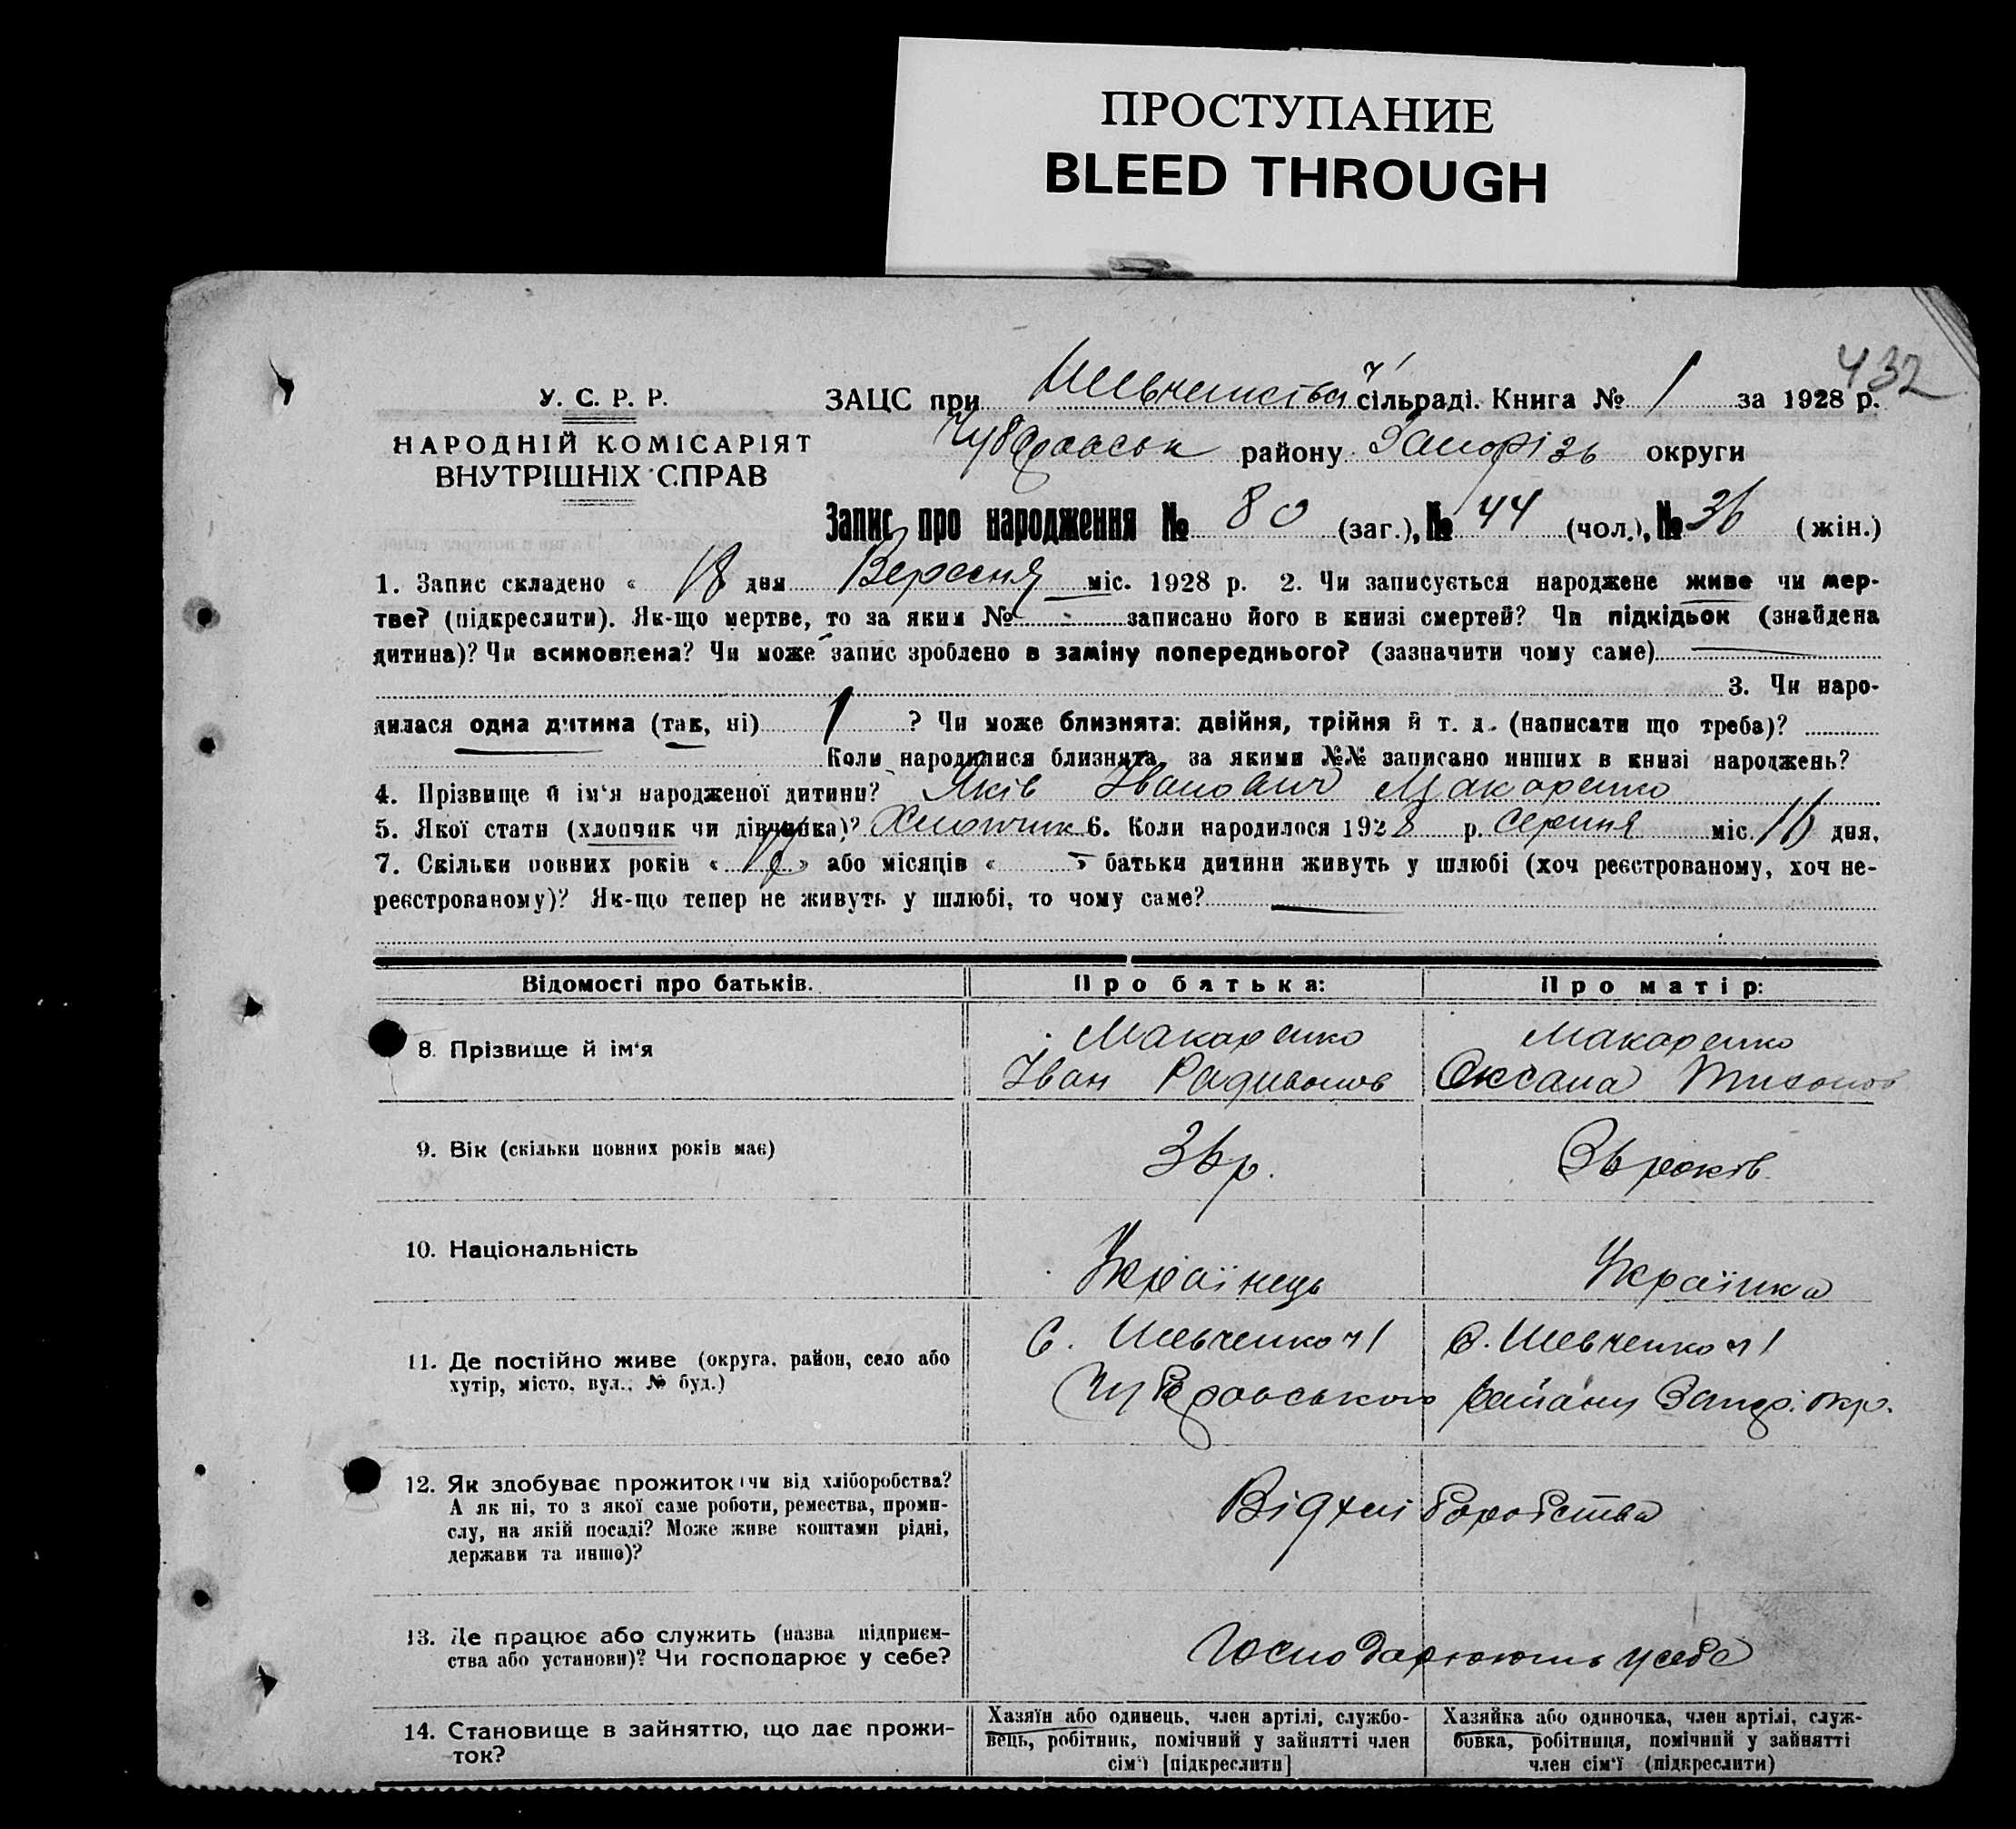 ПРОСТУПАНИЕ
BLEED THROUGH
432
У. С. Р. Р.
НАРОДНІЙ КОМІСАРІЯТ
ВНУТРІШНІХ СПРАВ
ЗАЦС при сільраді. Книга № 1 за 1928 р.
району Запорізь округи
Запис про народження № 80 (заг.), № 44 (чол.), № 36 (жін.)
1. Запис складено « 18 дня Вересня міс. 1928 р. 2. Чи записується народжене живе чи мер-
тве? (підкреслити). Як-що мертве, то за яким № - записано його в книзі смертей? Чи підкідьок (знайдена
дитина)? Чи всиновлена? Чи може запис зроблено в заміну попереднього? (зазначити чому саме)
3. Чи наро-
дилася одна дитина (так, ні) 1 ? Чи може близнята: двійня, трійня й т. д. (написати що треба)?
Коли народилися близнята, за якими №№ записано инших в книзі народжень?
4. Прізвище й ім'я народженої дитини? Яків Іванович Макаренко
5. Якої стати (хлопчик чи дівчинка)? Хлопчик 6. Коли народилося 1928 р. Серпня міс. 16 дня.
7. Скільки повних років « » або місяців « » батьки дитини живуть у шлюбі (хоч реєстрованому, хоч не-
реєстрованому)? Як-що тепер не живуть у шлюбі, то чому саме?
Відомості про батьків. Про батька: Про матір:
8. Прізвище й ім'я
Макаренко
Іван Радивонов
Макаренко
Оксана Тихонов
9. Вік (скільки повних років має) 36 р. 36 років
10. Національність Українець Українка
11. Де постійно живе (округа, район, село або
хутір, місто, вул., № буд.)
С. Шевченко ч 1 С. Шевченко ч 1
Чубаровського району Запор. окр.
12. Як здобуває прожиток чи від хліборобства?
А як ні, то з якої саме роботи, ремества, проми-
слу, на якій посаді? Може живе коштами рідні,
держави та инше)?
Від хліборобства
13. Де працює або служить (назва підприєм-
ства або установи)? Чи господарює у себе?
Господарюють у себе
14. Становище в зайняттю, що дає прожи-
ток?
Хазяїн або одинець, член артілі, службо-
вець, робітник, помічний у зайнятті член
сім'ї [підкреслити]
Хазяйка або одиночка, член артілі, служ-
бовка, робітниця, помічний у зайнятті
член сім'ї (підкреслити)